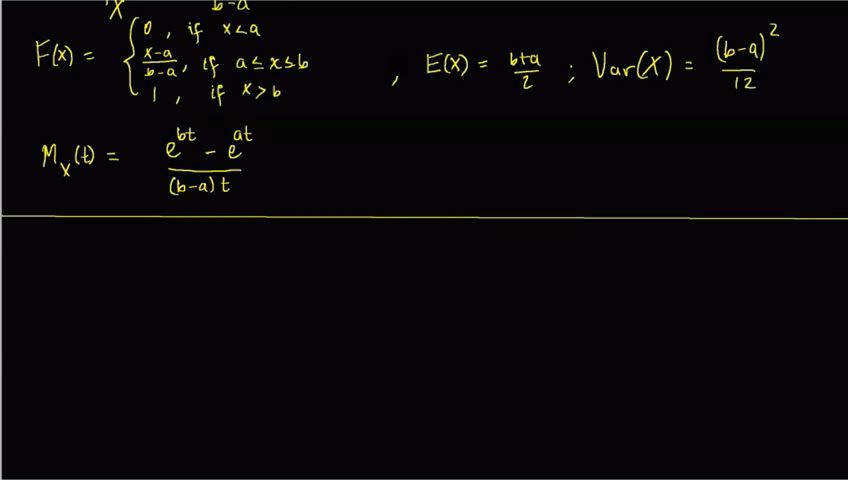 X b-a
F(x) = { 0, if x<a
x-a/b-a, if a≤x≤b
1, if x>b
, E(X) = b+a/2 ; Var(X) = (b-a)²/12
M_X(t) = e^bt - e^at/(b-a)t